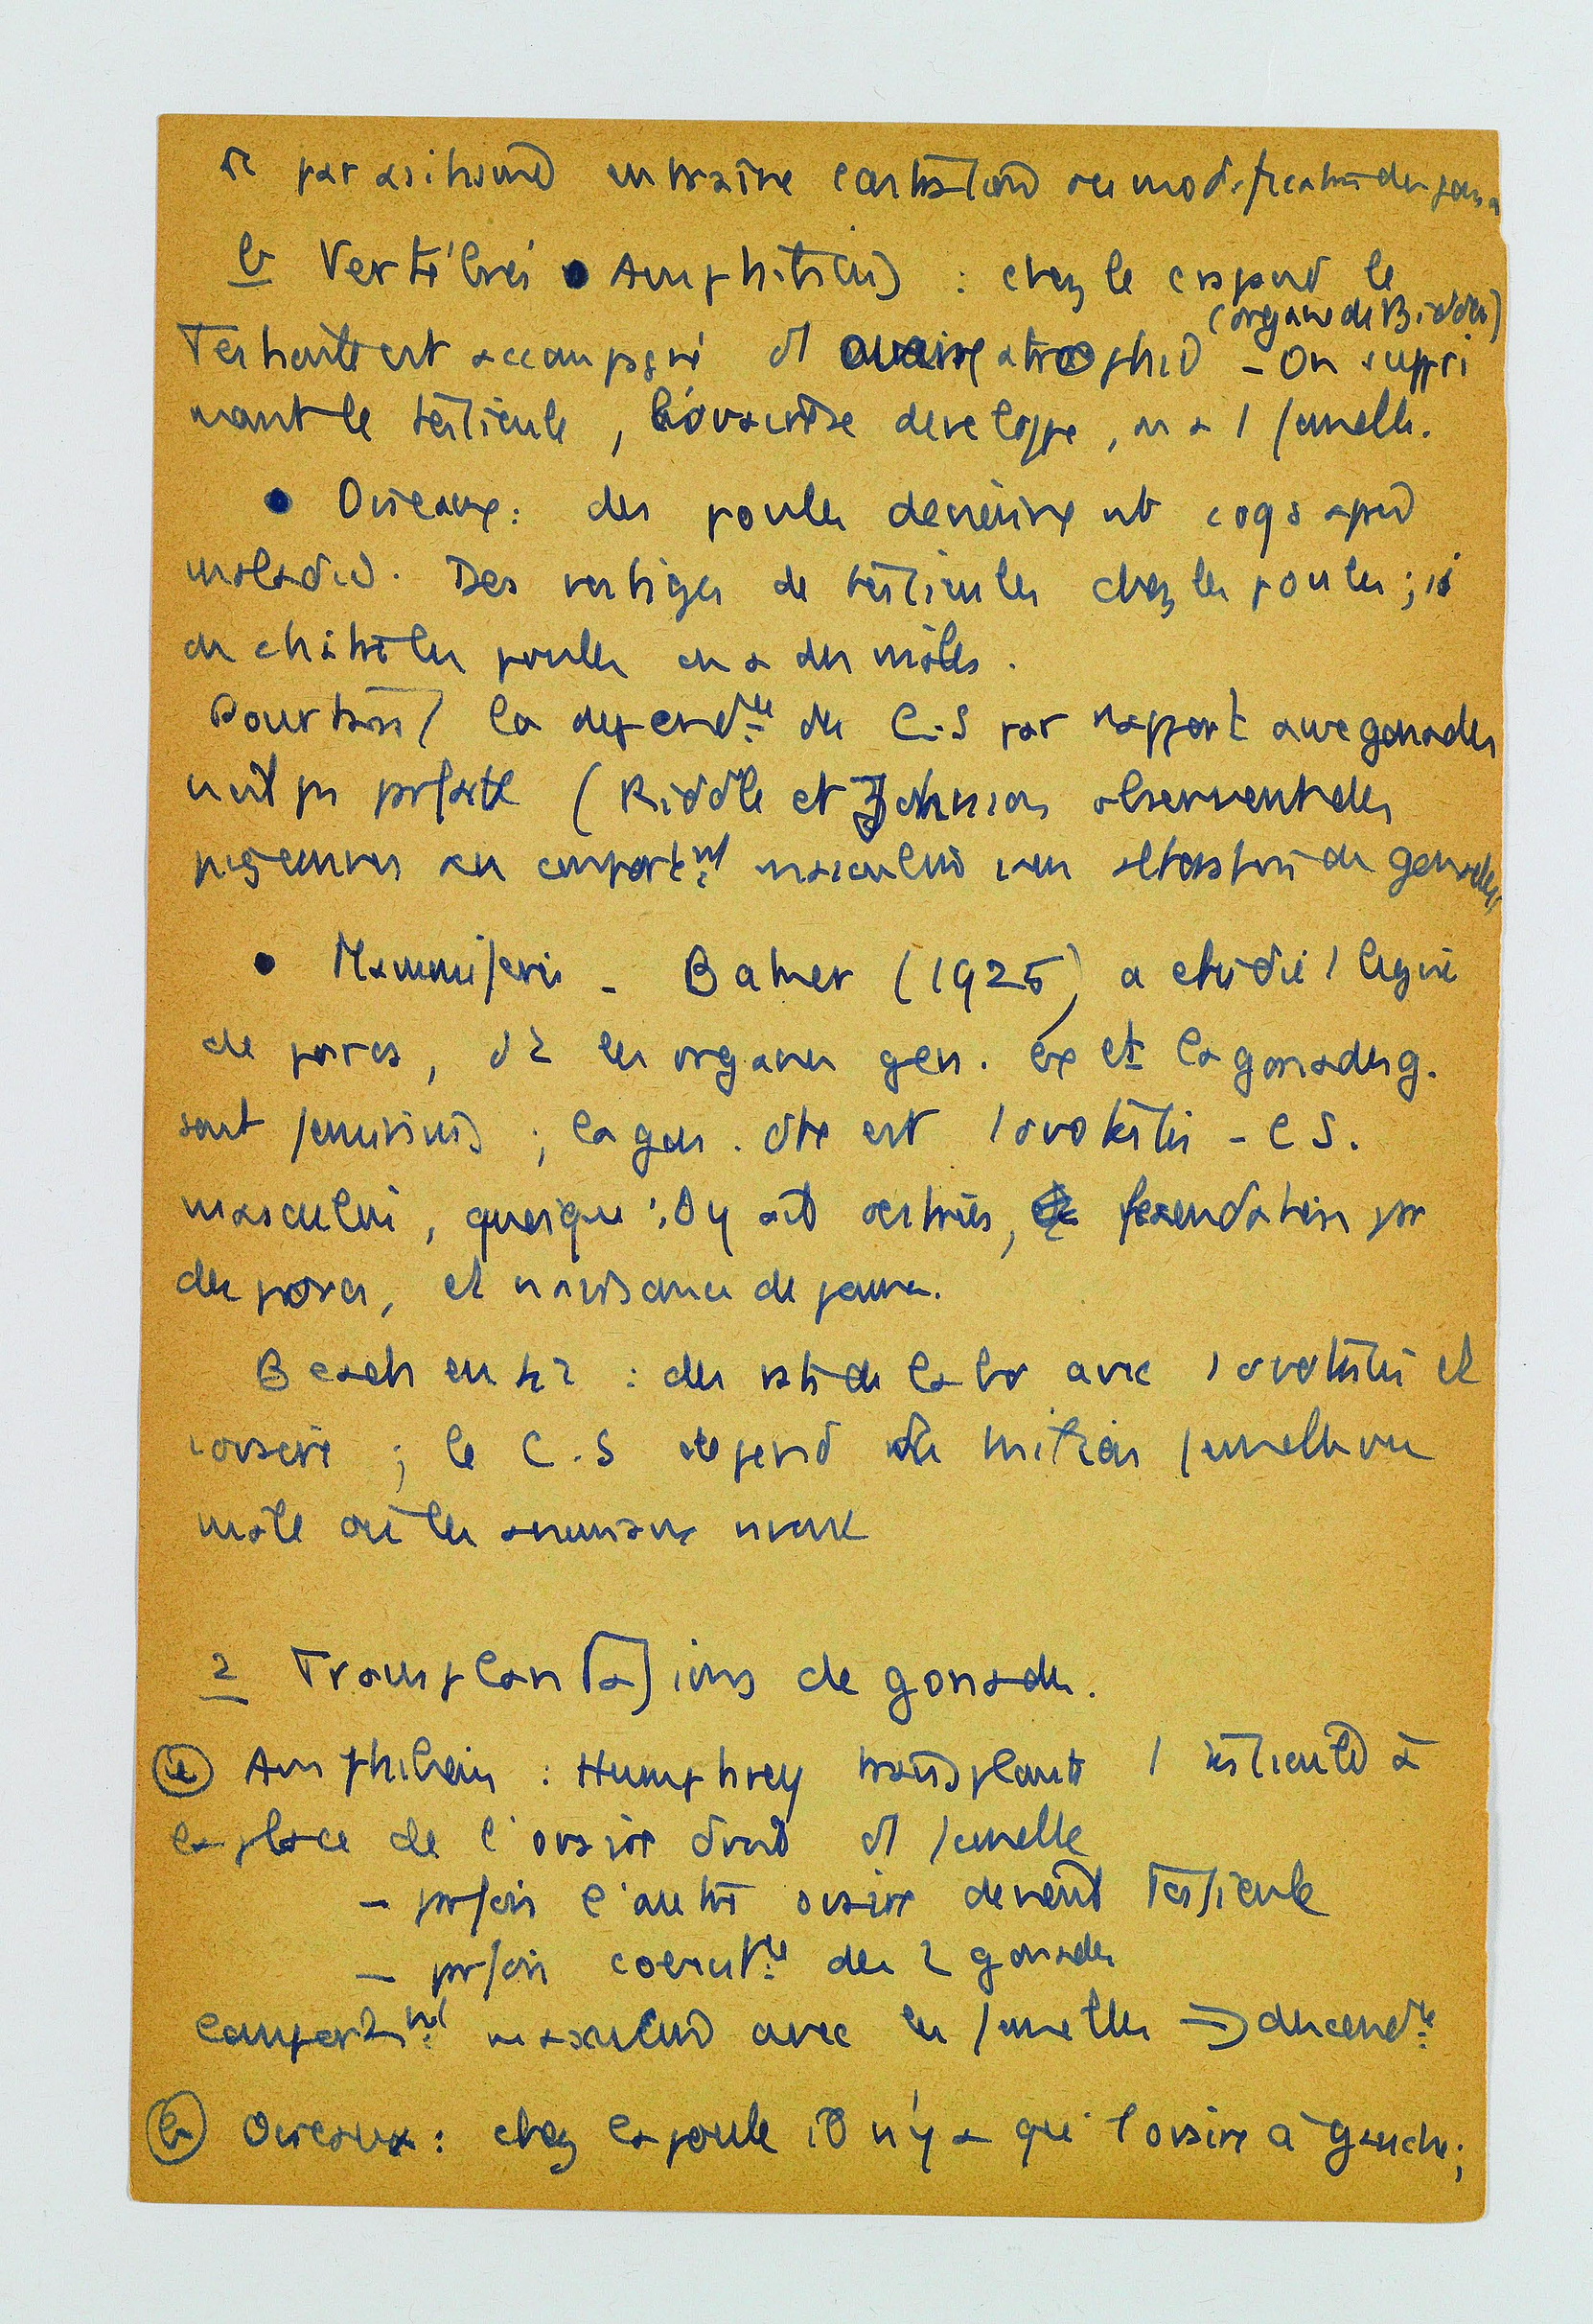 le parasitisme entraîne castration ou modification des gona
b Vertébrés • Amphibiens : chez le crapaud le
(organe de Bidder)
Testicule est accompagné d'1 ovaire atrophié – On suppri
mant le testicule, l'ovaire se développe, on a 1 femelle.
• Oiseaux : des poules deviennent coqs après
maladie. Des vestiges de testicules chez les poules ; si
on châtre les poules on a des mâles.
Pourtant la depend.ce du C.S par rapport aux gonades
n'est pas parfaite (Riddle et Johnson observent des
pigeonnes au comport.nt masculin sans altération de gonades
• Mammifères – Baker (1925) a étudié 1 lignée
de porcs, dt les organes gen. ex et la gonade g.
sont féminins ; la gon. dte est 1 ovotestis – C S.
masculin, quoiqu'il y ait oestrus, fécondation par
des porcs, et naissance de jeunes.
Beach en 42 : des rats de labo avec 1 ovotestis et
1 ovaire ; le C.S dépend du milieu femelle ou
mâle où les animaux vivent
2 Transplantations de gonades.
a Amphibiens : Humphrey transplante 1 testicule à
la place de l'ovaire droit d'1 femelle
– parfois l'autre ovaire devient testicule
– parfois coexist.ce des 2 gonades
Comport.nt masculin avec les femelles => descend.ce
b Oiseaux : chez la poule il n'y a qu'1 ovaire à gauche ;